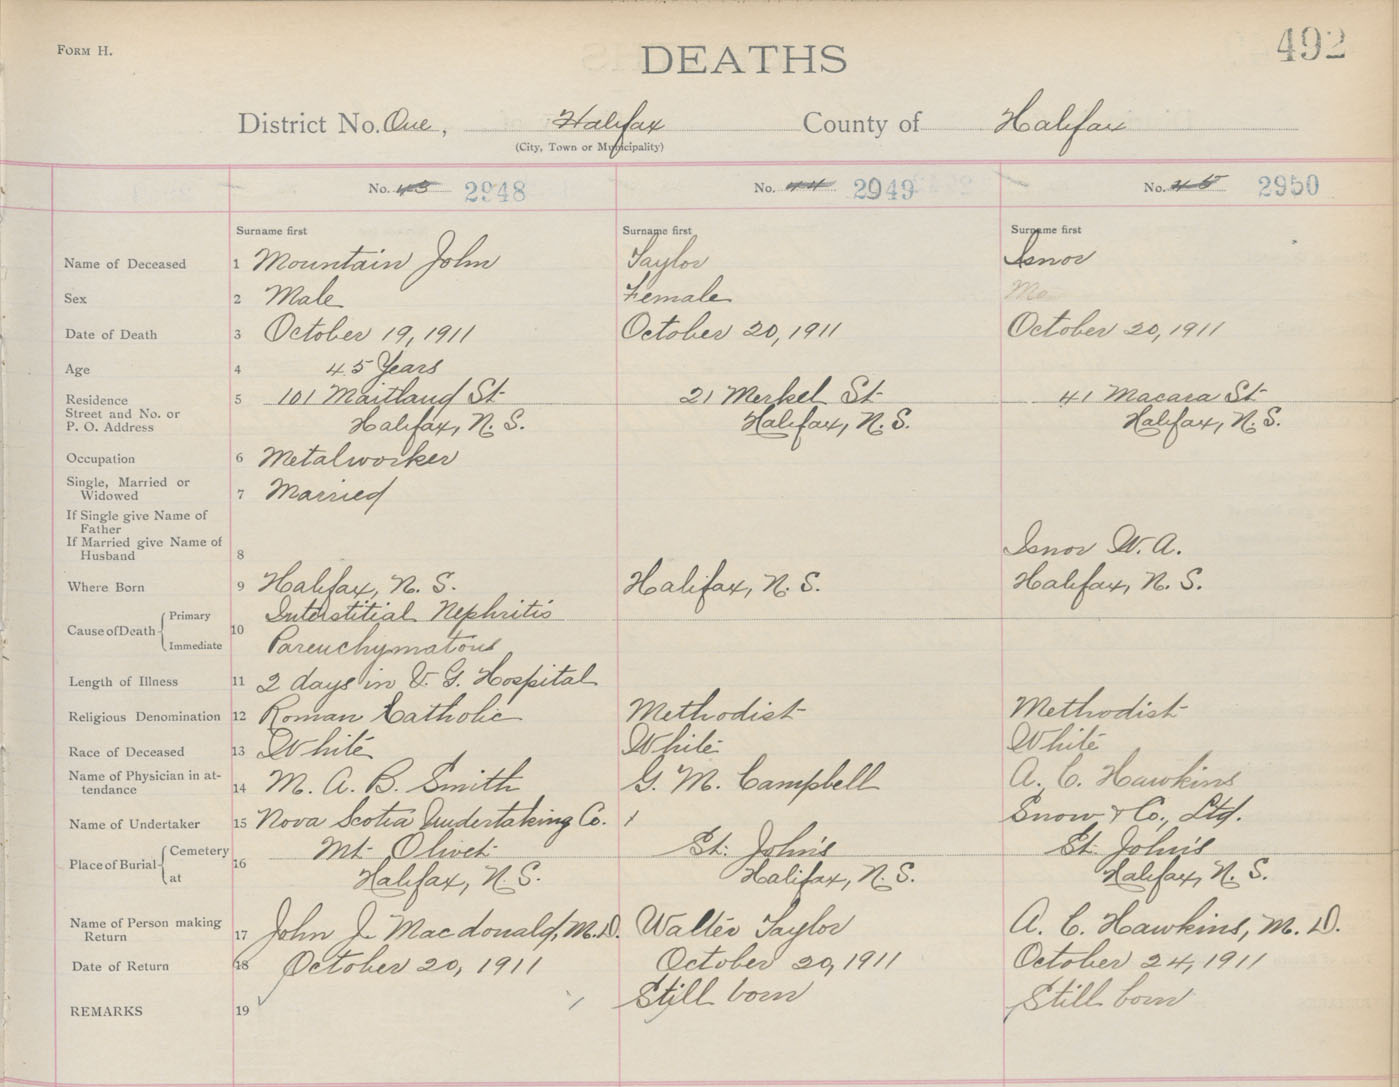 FORM H.
DEATHS
492
District No. One, Halifax County of Halifax
(City, Town or Municipality)
No. 43 2948 No. 44 2949 No. 45 2950
Surname first Surname first Surname first
Name of Deceased 1 Mountain John Taylor Isnor
Sex 2 Male Female Ma
Date of Death 3 October 19, 1911 October 20, 1911 October 20, 1911
Age 4 45 Years
Residence 5 101 Maitland St 21 Merkel St 41 Macara St
Street and No. or
P. O. Address Halifax, N. S. Halifax, N. S. Halifax, N. S.
Occupation 6 Metalworker
Single, Married or
Widowed 7 Married
If Single give Name of
Father
If Married give Name of
Husband 8 Isnor W. A.
Where Born 9 Halifax, N. S. Halifax, N. S. Halifax, N. S.
Primary Interstitial Nephritis
Cause of Death 10
Immediate Parenchymatous
Length of Illness 11 2 days in V. G. Hospital
Religious Denomination 12 Roman Catholic Methodist Methodist
Race of Deceased 13 White White White
Name of Physician in at-
tendance 14 M. A. B. Smith G. M. Campbell A. C. Hawkins
Name of Undertaker 15 Nova Scotia Undertaking Co. Snow & Co., Ltd.
Cemetery Mt Olivet St. John's St. John's
Place of Burial 16
at Halifax, N. S. Halifax, N. S. Halifax, N. S.
Name of Person making
Return 17 John J. Macdonald, M. D. Walter Taylor A. C. Hawkins, M. D.
Date of Return 18 October 20, 1911 October 20, 1911 October 24, 1911
REMARKS 19 Still born Still born